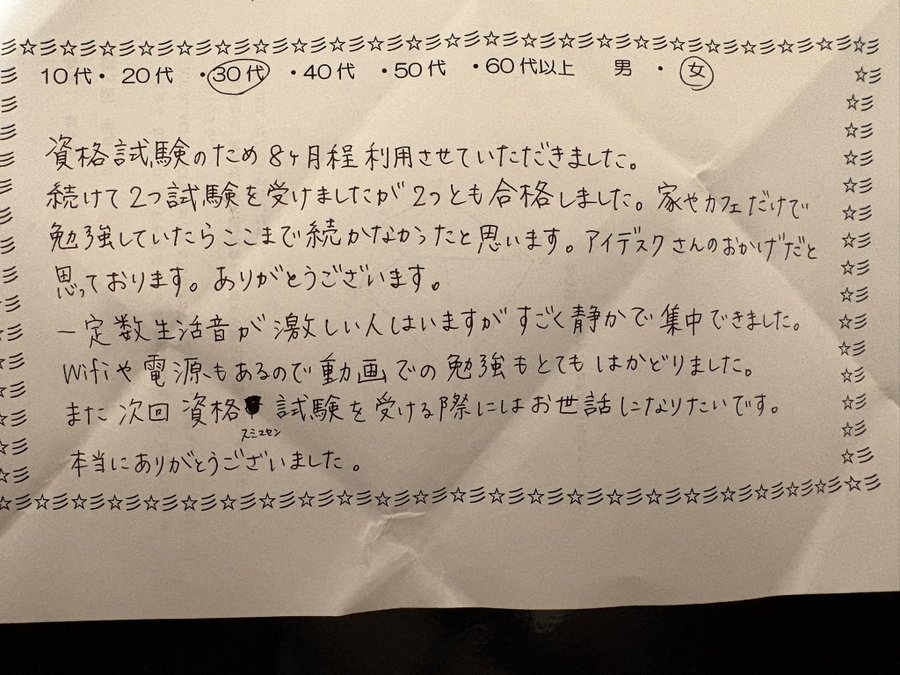 ☆彡☆彡☆彡☆彡☆彡☆彡☆彡☆彡☆彡☆彡☆彡☆彡☆彡☆彡☆彡☆彡☆彡☆彡☆彡☆彡☆彡
10代・20代・30代・40代・50代・60代以上 男・女
資格試験のため8ヶ月程利用させていただきました。
続けて2つ試験を受けましたが2つとも合格しました。家やカフェだけで
勉強していたらここまで続かなかったと思います。アイデスクさんのおかげだと
思っております。ありがとうございます。
一定数生活音が激しい人はいますがすごく静かで集中できました。
Wifiや電源もあるので動画での勉強もとてもはかどりました。
また次回資格試験を受ける際にはお世話になりたいです。
スミマセン
本当にありがとうございました。
☆彡☆彡☆彡☆彡☆彡☆彡☆彡☆彡☆彡☆彡☆彡☆彡☆彡☆彡☆彡☆彡☆彡☆彡☆彡☆彡☆彡